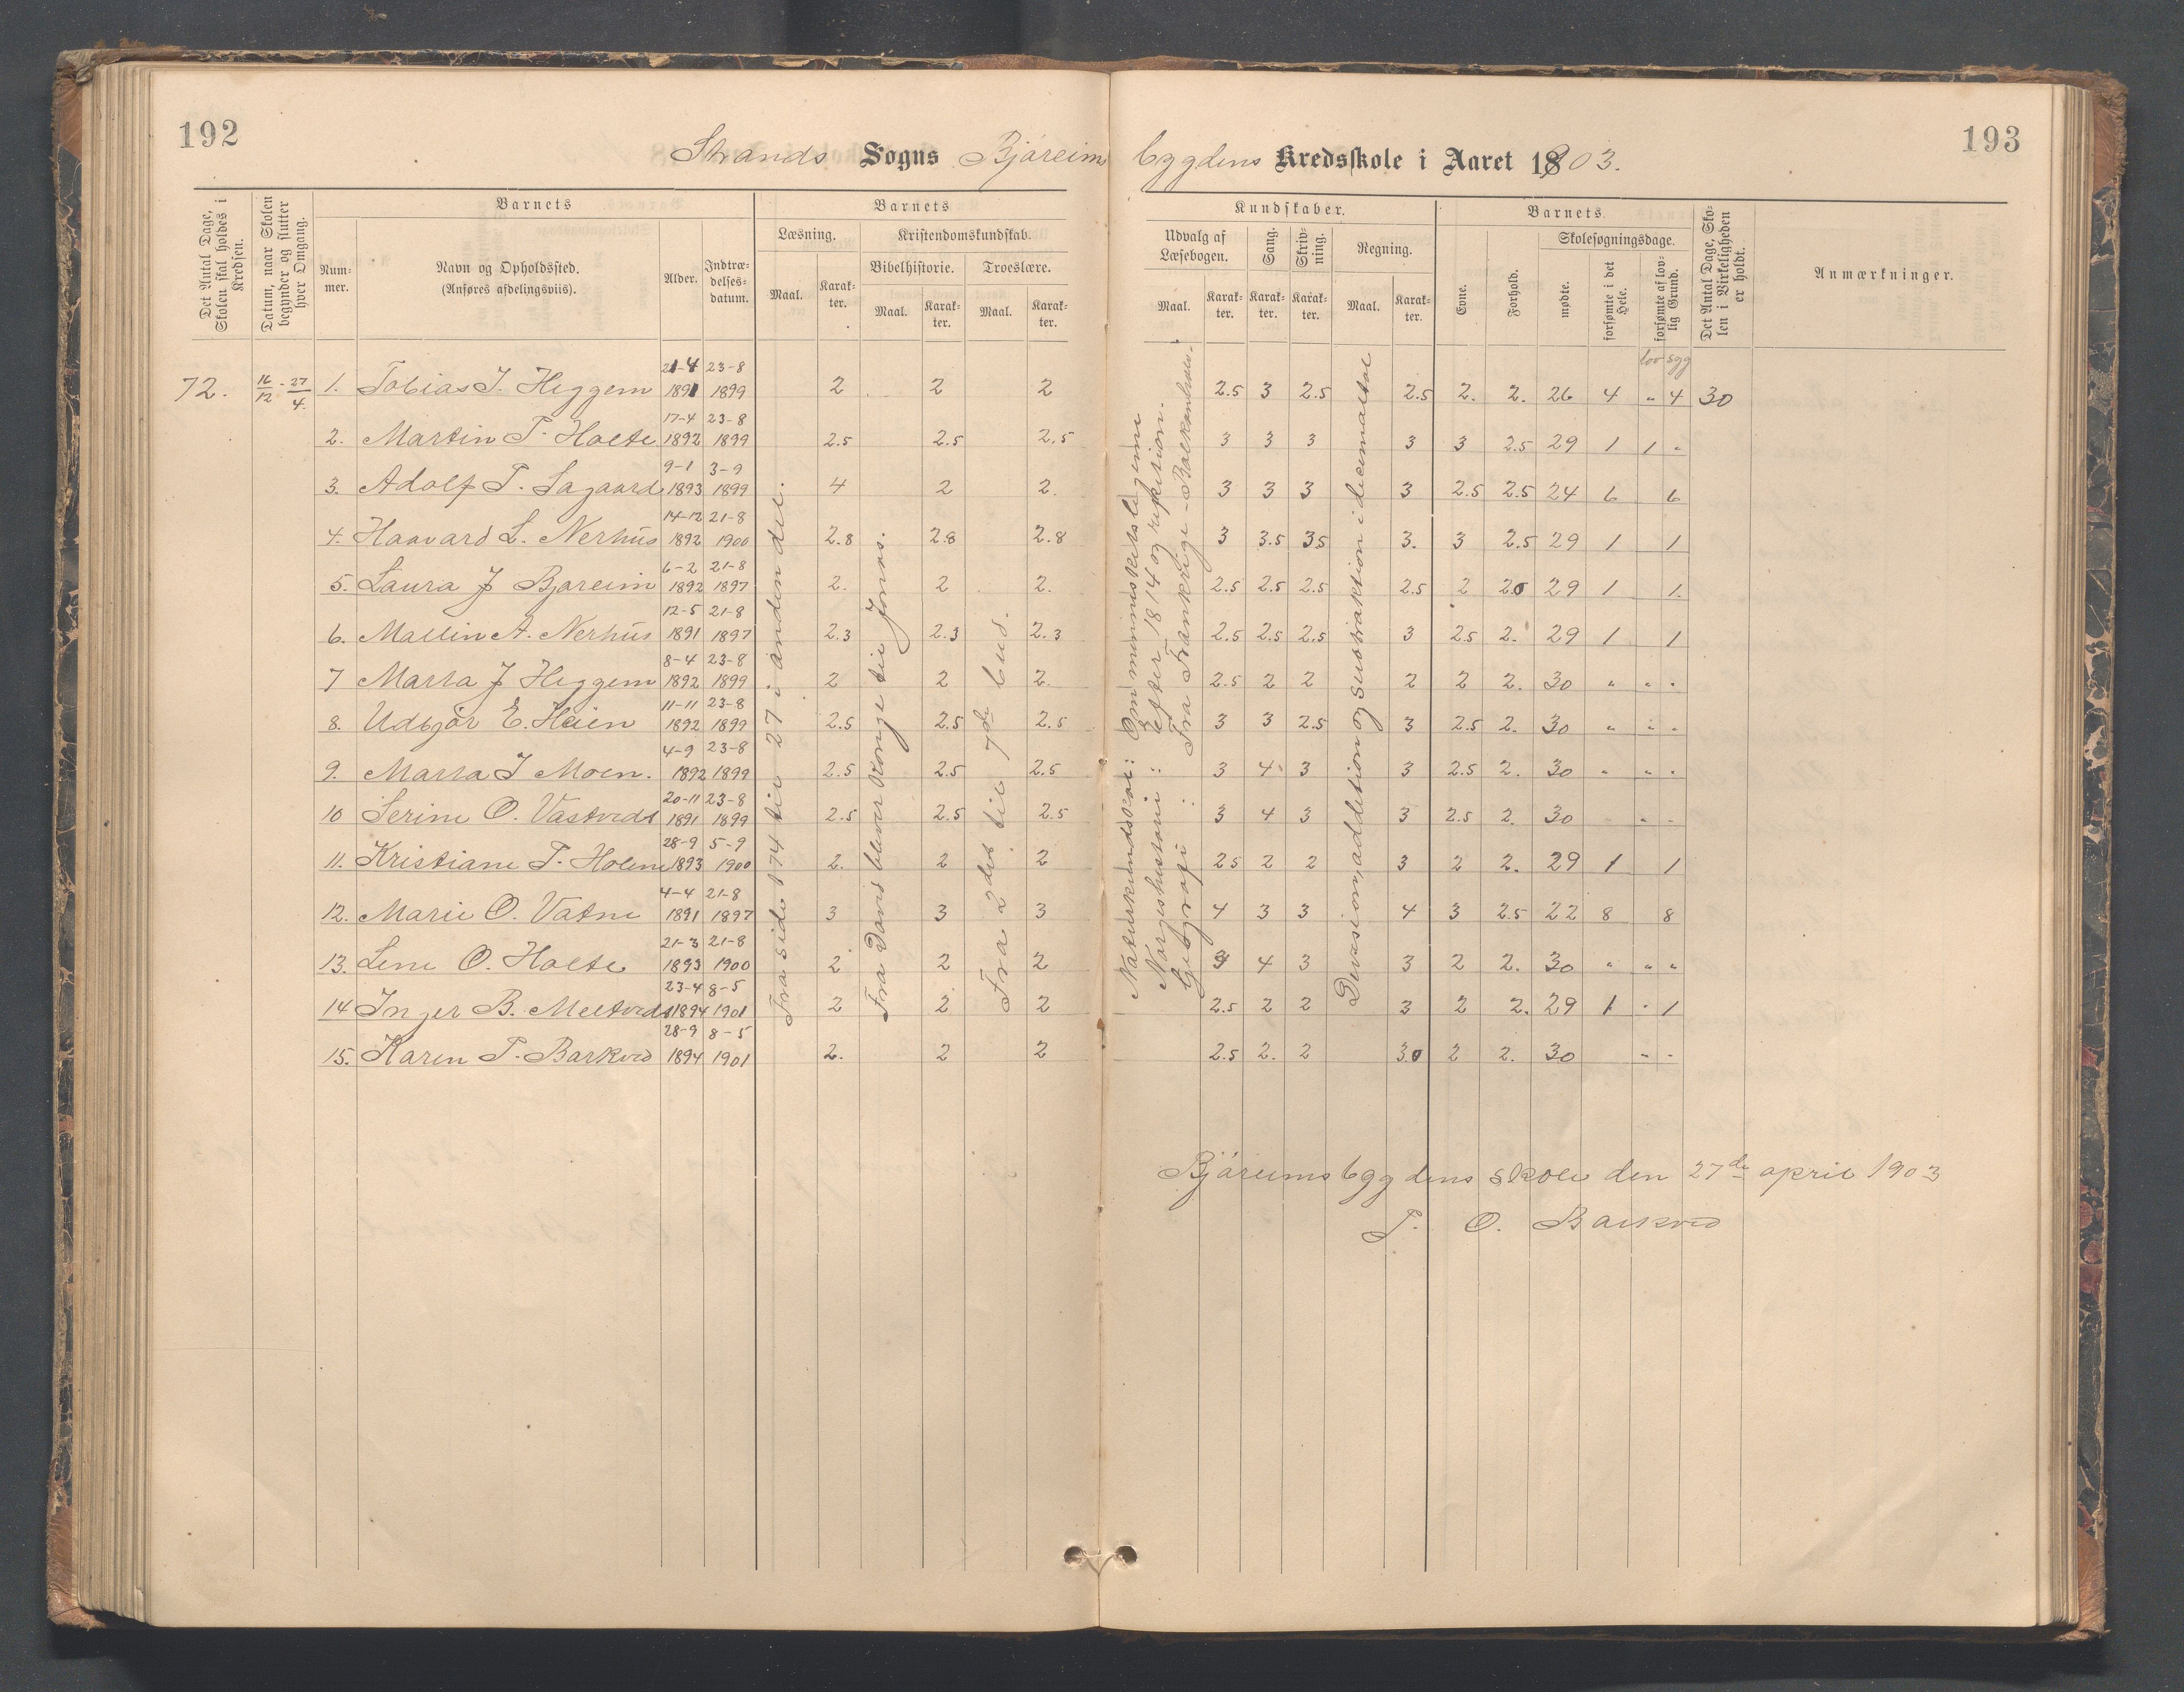 192
193
Strands Sogns Björeims bygdens Kredsskole i Aaret 1903.
Det Antal Dage, Skolen skal holdes i Kredsen.
Datum, naar Skolen begynder og slutter hver Omgang.
Barnets
Num-mer.
Navn og Opholdssted.
(Anføres afdelingsviis).
Alder.
Indtræ-delses-datum.
Barnets
Læsning.
Maal. Karak-ter.
Kristendomskundskab.
Bibelhistorie. Troeslære.
Maal. Karak-ter. Maal. Karak-ter.
Kundskaber.
Udvalg af Læsebogen. Sang. Skriv-ning. Regning.
Maal. Karak-ter. Karak-ter. Karak-ter. Maal. Karak-ter.
Barnets
Evne. Forhold. Skolesøgningsdage.
mødte. forsømte i det Hele. forsømte af lov-lig Grund.
Det Antal Dage, Sko-len i Virkeligheden er holdt.
Anmærkninger.
lov sygd
72. 16/12 - 27/4. 1. Tobias T. Heggem 21-4 1891 23-8 1899 2 2 2 2.5 3 2.5 2.5 2. 2. 26 4 " 4 30
2. Martin T. Holte 17-4 1892 23-8 1899 2.5 2.5 2.5 3 3 3 3 3 2.5 29 1 1 "
3. Adolf T. Lagaard 9-1 1893 3-9 1899 4 2 2. 3 3 3 3 2.5 2.5 24 6 6
4. Haavard L. Nerhus 14-12 1892 21-8 1900 2.8 2.8 2.8 3 3.5 3.5 3. 3 2.5 29 1 1
5. Laura J Bjoreim 6-2 1892 21-8 1897 2. 2 2. 2.5 2.5 2.5 2.5 2 2.0 29 1 1.
6. Mallin A. Nerhus 12-5 1891 21-8 1897 2.3 2.3 2.3 2.5 2.5 2.5 3 2.5 2. 29 1 1
7 Marta J Heggem 8-4 1892 23-8 1899 2 2 2. 2.5 2 2 2 2 2. 30 " " "
8. Udbjör E. Heien 11-11 1892 23-8 1899 2.5 2.5 2.5 3 3 2.5 3 2.5 2. 30 " " "
9. Marta J Moen. 4-9 1892 23-8 1899 2.5 2.5 2.5 3 4 3 3 2.5 2. 30 " " "
10 Serine O. Vastveds 20-11 1891 23-8 1899 2.5 2.5 2.5 3 4 3 3 2.5 2. 30 " "
11. Kristiane T. Holem 28-9 1893 5-9 1900 2. 2 2 2.5 2 2 3 2 2. 29 1 1
12. Marie O. Vatne 4-4 1891 21-8 1897 3 3 3 4 3 3 4 3 2.5 22 8 8
13. Lene O. Holte 21-3 1893 21-8 1900 2 2 2 3 4 3 3 2 2. 30 " " "
14 Inger B. Meltveds 23-4 1894 8-5 1901 2 2 2 2.5 2 2 3 2 2. 29 1 " 1
15. Karen T. Barkved 28-9 1894 8-5 1901 2. 2 2 2.5 2. 2 3.0 2 2. 30 " "
Fra side 174 til 27 i anden del.
Fra David bliver Konge til Jonas.
Fra 2det til 7de bud.
Naturkundskal: Om menneskets legeme
Norgeshistorie : Efter 1814 og repetition.
Geografi : Fra Frankrige - Balkanhalv.
Devision, addition og substraktion i decimaltal
Björeimsbygdens skole den 27de april 1903
T. O. Barkved